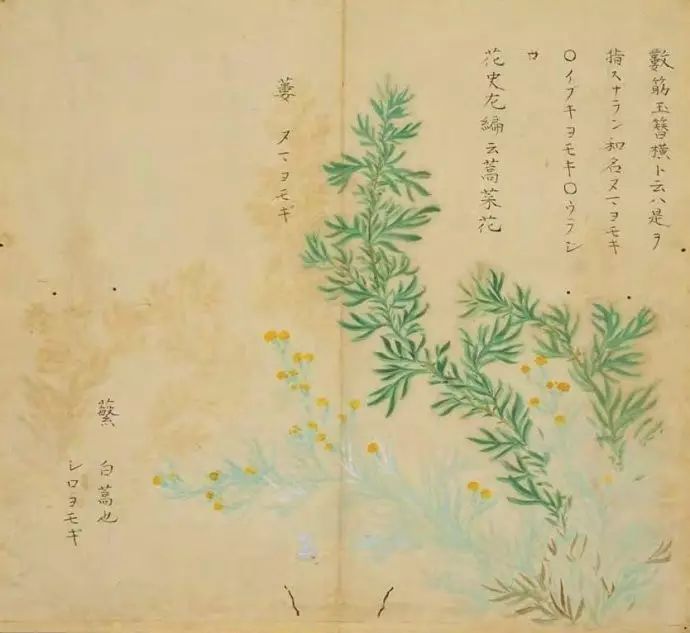 數筋玉簪橫ト云ハ是ヲ
指スナラン和名ヌマヨモキ
〇イブキヨモキ〇ウラジ
花史左編云蒿菜花
蔞 ヌマヨモギ
蘩 白蒿也
シロヨモギ